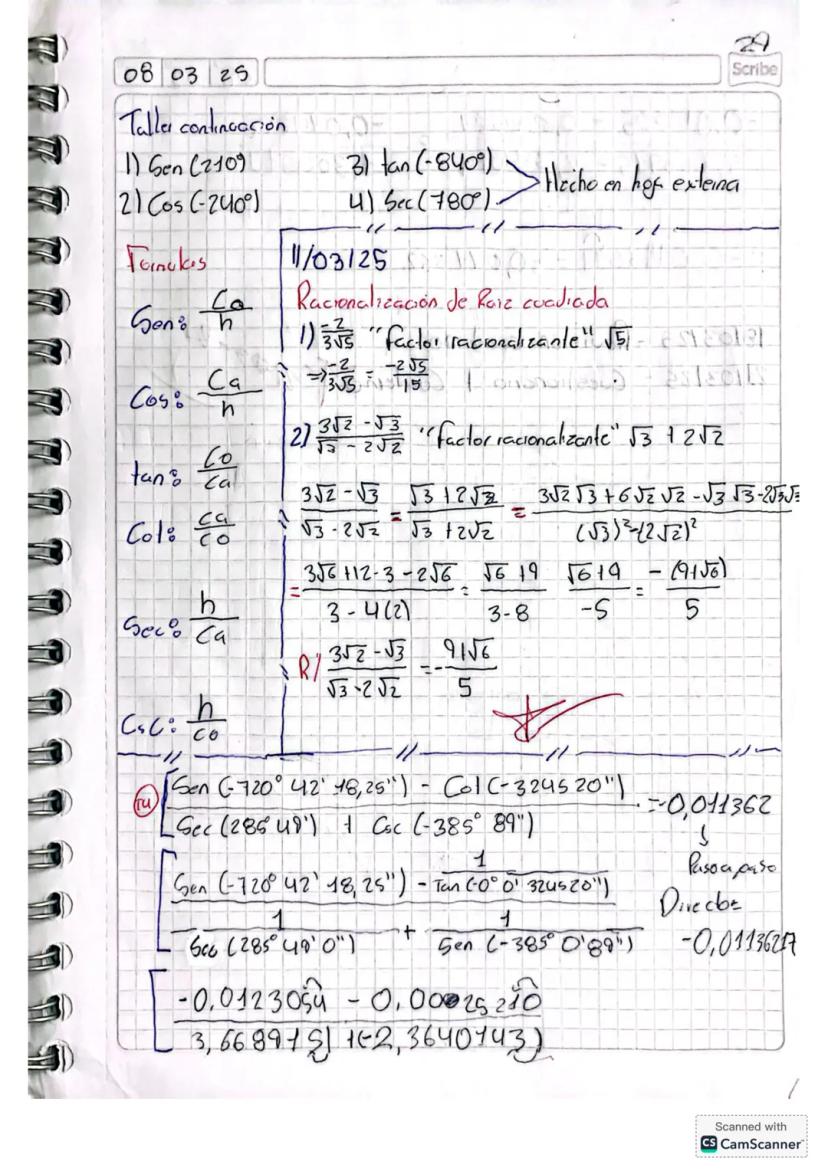 29
Scribe
08 03 25
Taller continuación
1) Sen (210º)
3) tan (-840°)
2) Cos (-240°)
4) Sec (780°)
Hecho en hoja externa
Formulas
Sen: Co/h
Cos: Ca/h
tan: Co/Ca
Cot: Ca/Co
Sec: h/Ca
Csc: h/Co
11/03/25
Racionalización de Raiz cuadrada
1) -2/3√5 "factor racionalizante" √5
⇒ -2/3√5 = -2√5/15
2) 3√2 - √3/√3 - 2√2 "factor racionalizante" √3 + 2√2
3√2 - √3/√3 - 2√2 = √3 + 2√2/√3 + 2√2 = 3√2√3 + 6√2√2 - √3√3 - 2√3√2/(√3)² - (2√2)²
= 3√6 + 12 - 3 - 2√6/3 - 4(2) = √6 + 9/3 - 8 √6 + 9/-5 = -(9+√6)/5
R/ 3√2 - √3/√3 - 2√2 = - 9+√6/5
Sen (-720° 42' 18,25") - Cot (-324520")/Sec (285° 49') + Csc (-385° 89") = -0,011362
Paso a paso
Sen (-720° 42' 18,25") - 1/Tan (-0° 0' 324520")
1/Sec (285° 49' 0") + 1/Sen (-385° 0' 89")
Directo
-0,01136217
-0,0123054 - 0,00025210
3,6689751 + (-2,3640743)
Scanned with
CS CamScanner